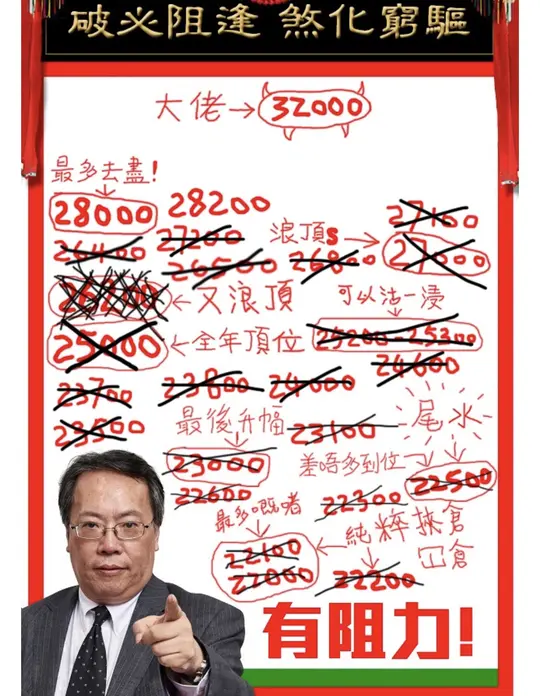 破必阻逢 煞化窮驅
大佬→32000
最多去盡!
28000 28200 27400
26400 27200 浪頂s→27000
26500 26800
←又浪頂 可以沽一漬
25000←全年頂位 25200-25300
24600
23700 23800 24000
23500 最後升幅 23100 尾水
23000 差唔多到位 22500
22600 22300
最多嘅啫 純粹挾倉
22100 冚倉
22000 22200
有阻力!